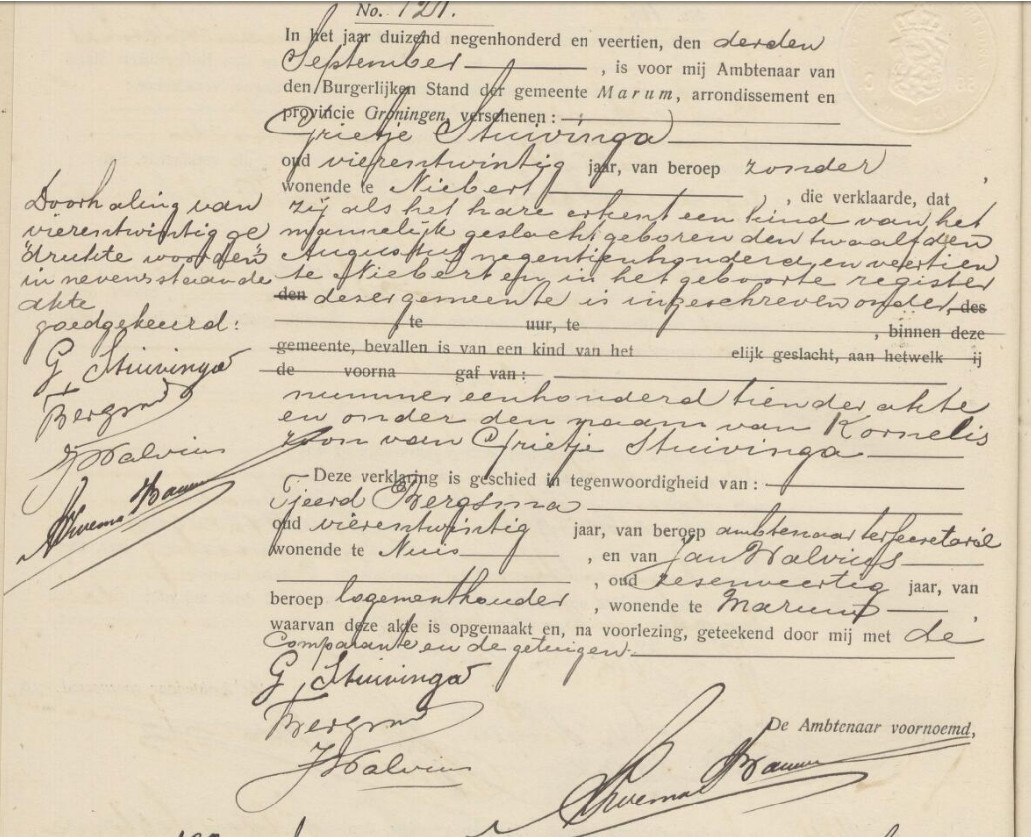 No. 121.
In het jaar duizend negenhonderd en veertien, den derden
September , is voor mij Ambtenaar van
den Burgerlijken Stand der gemeente Marum, arrondissement en
provincie Groningen, verschenen :
Grietje Stuivinga
oud vierentwintig jaar, van beroep zonder ,
wonende te Niebert , die verklaarde, dat
zij als het hare erkent een kind van het
mannelijk geslacht geboren den twaalfden
Augustus negentienhonderd en veertien
te Niebert en in het geboorte register
den dezer gemeente is ingeschreven onder, des
te uur, te , binnen deze
gemeente, bevallen is van een kind van het elijk geslacht, aan hetwelk ij
de voorna gaf van :
nummer eenhonderd tien der akte
en onder den naam van Kornelis
zoon van Grietje Stuivinga
Deze verklaring is geschied in tegenwoordigheid van :
Tjeerd Bergsma
oud vierentwintig jaar, van beroep ambtenaar ter secretarie
wonende te Nuis , en van Jan Walvius
, oud zesenveertig jaar, van
beroep logementhouder , wonende te Marum
waarvan deze akte is opgemaakt en, na voorlezing, geteekend door mij met de
Comparante en de getuigen.
G. Stuivinga
TBergsma
JWalvius
De Ambtenaar voornoemd,
Doorhaling van
vierentwintig ge
"drukte woorden"
in nevenstaande
akte
goedgekeurd:
G. Stuivinga
TBergsma
JWalvius